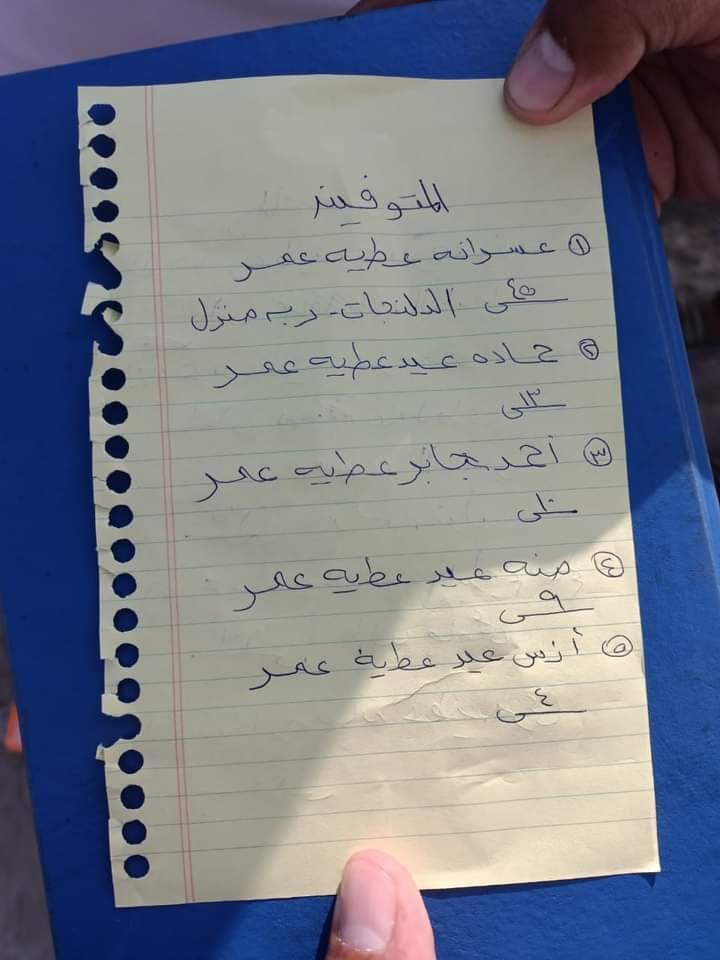 المتوفين
① عسرانه عطيه عمر
٤٥ سى الدلنجات - ربه منزل
② حماده عيد عطيه عمر
١٣ سى
③ أحمد جابر عطيه عمر
١٠ سى
④ منه عيد عطيه عمر
٩ سى
⑤ أنس عيد عطية عمر
٤ سى